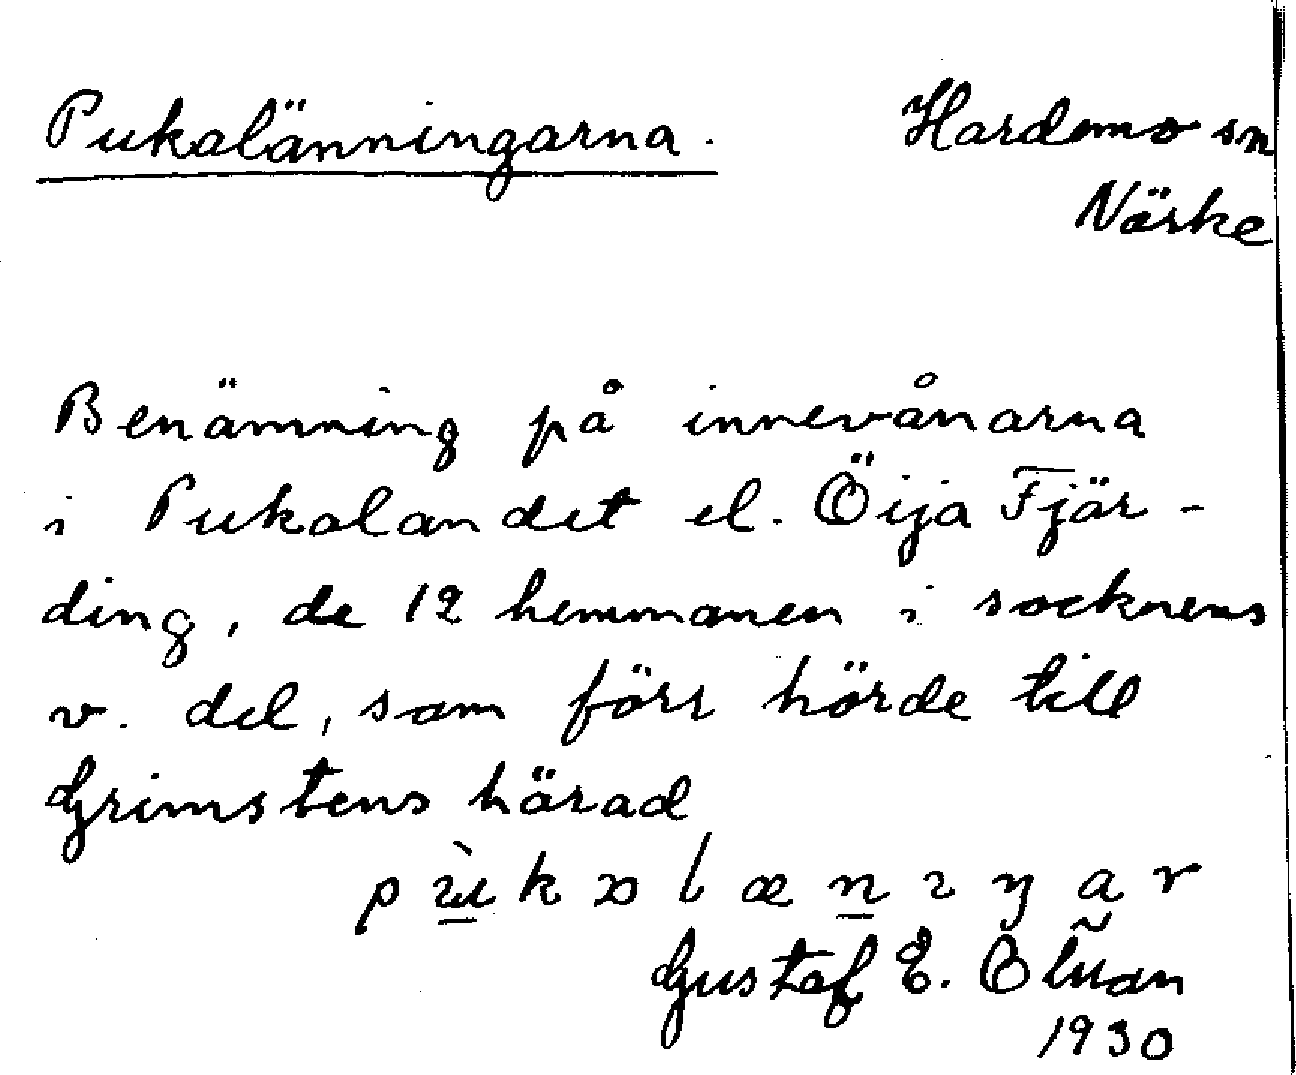 Pukalänningarna.
Hardemo sn
Närke
Benämning på innevånarna
i Pukalandet el. Öija Fjär-
ding, de 12 hemmanen i socknens
v. del, som förr hörde till
Grimstens härad
Gustaf E.
1930